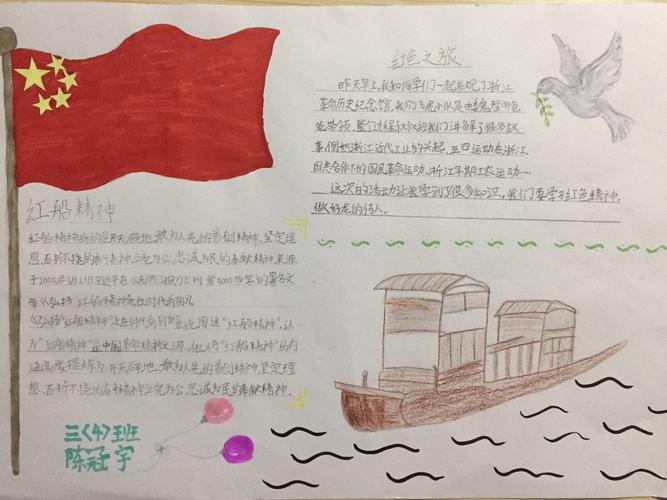 红色之旅
昨天早上,我和同学们一起参观了浙江
革命历史纪念馆,我们
带领,整个过程叔叔给我们讲解了很多故
事,例如浙江近代工业的兴起、五四运动在浙江、
国共合作下的国民革命运动、浙江早期工农运动……
这次的活动让我学到了很多知识,我们要学习红色精神,
做好龙的传人。
红船精神
红船精神指的是开天辟地、敢为人先的首创精神,坚定理
想、百折不挠的奋斗精神,立党为公、忠诚为民的奉献精神,来源
于2005年6月21日习近平在《光明日报》上刊发4000多字的署名文
章《弘扬“红船精神”走在时代前列》
《弘扬“红船精神”走在时代前列》系统阐述“红船精神”,认
为“红船精神”是中国革命精神之源,他将“红船精神”的内
涵高度提炼为:开天辟地、敢为人先的首创精神,坚定理
想、百折不挠的奋斗精神,立党为公、忠诚为民的奉献精神。
三〈4〉班
陈冠宇